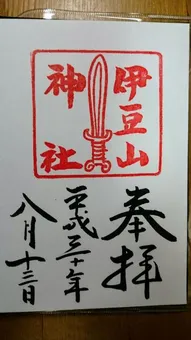 伊豆山
神社
奉拝
平成三十年
八月十三日